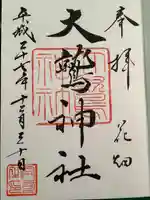 奉拝
花畑
大鷲神社
平成二十七年十二月三十日